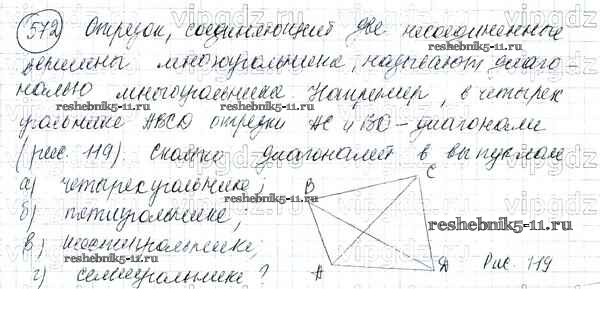 572 Отрезок, соединяющий две несоединенные
вершины многоугольника, называют диаго-
налью многоугольника. Например, в четырех
угольнике ABCD отрезки AC и BD - диагонали
(рис. 119). Сколько диагоналей в выпуклом
а) четырехугольнике;
б) пятиугольнике;
в) шестиугольнике,
г) семиугольнике?
B
C
A
D
Рис. 119
reshebnik5-11.ru
reshebnik5-11.ru
reshebnik5-11.ru
reshebnik5-11.ru
reshebnik5-11.ru
reshebnik5-11.ru
vipgdz